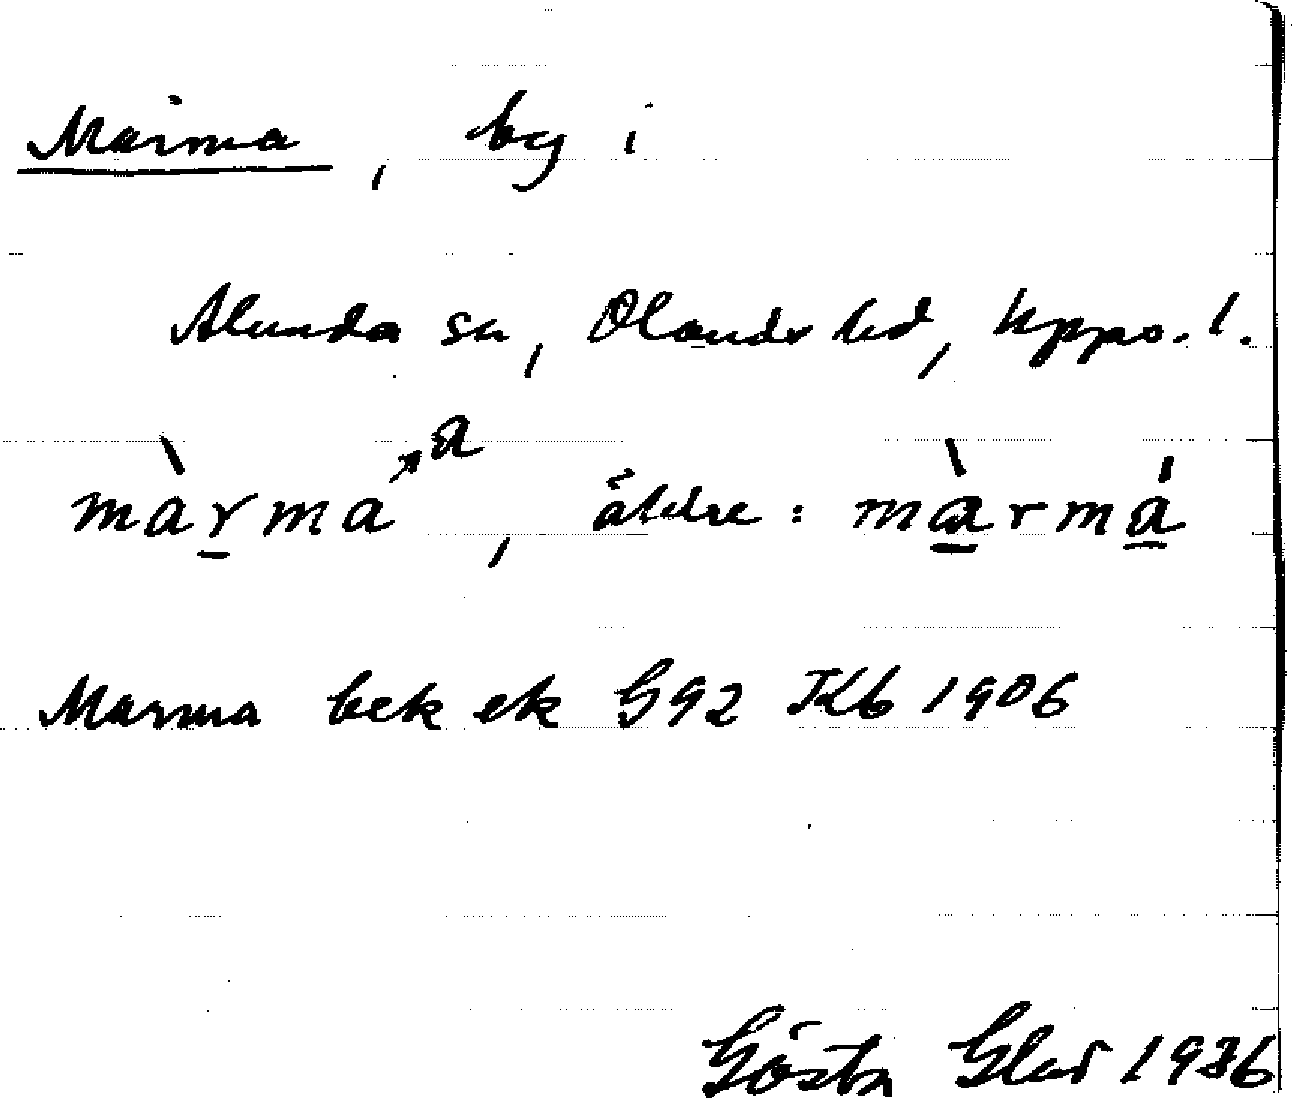 Marma, by i
Alunda sn, Olands hd, Upps. l.
màrma ↗a, äldre: màrmá
Marma bek ek G92 Kb 1906
Gösta 1936